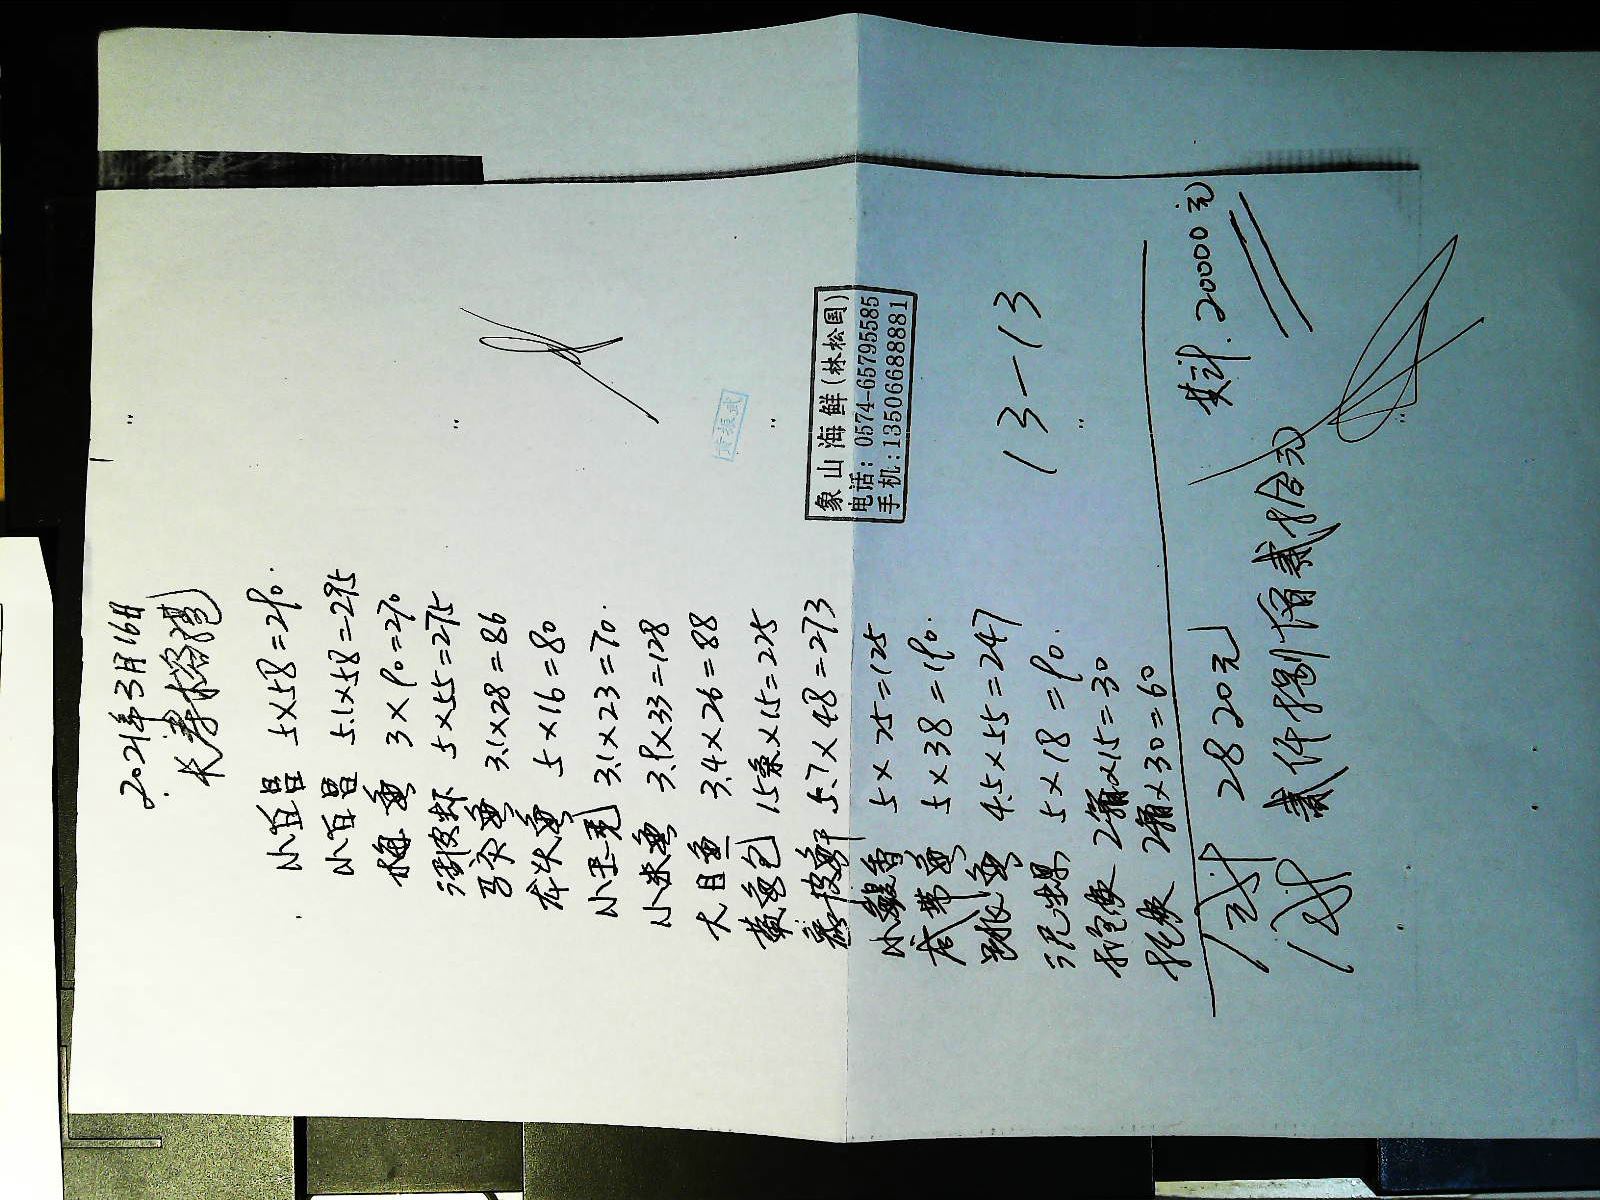 2021年3月16日
长寿格湾
小白昌 5×58=290.
小白昌 5.1×58=295
梅鱼 3×90=270
活皮虾 5×55=275
马交鱼 3.1×28=86
龙头鱼 5×16=80
3.1×23=70.
小米鱼 3.9×33=128
大目鱼 3.4×26=88
黄鱼包 15条×15=225
5.7×48=273
5×25=125
带鱼 5×38=190.
4.5×55=247
5×18=90.
2箱×15=30
2箱×30=60
2820元
贰仟捌佰贰拾元
象山海鲜(林松国)
电话: 0574-65795585
手机: 13506688881
13-13
20000元